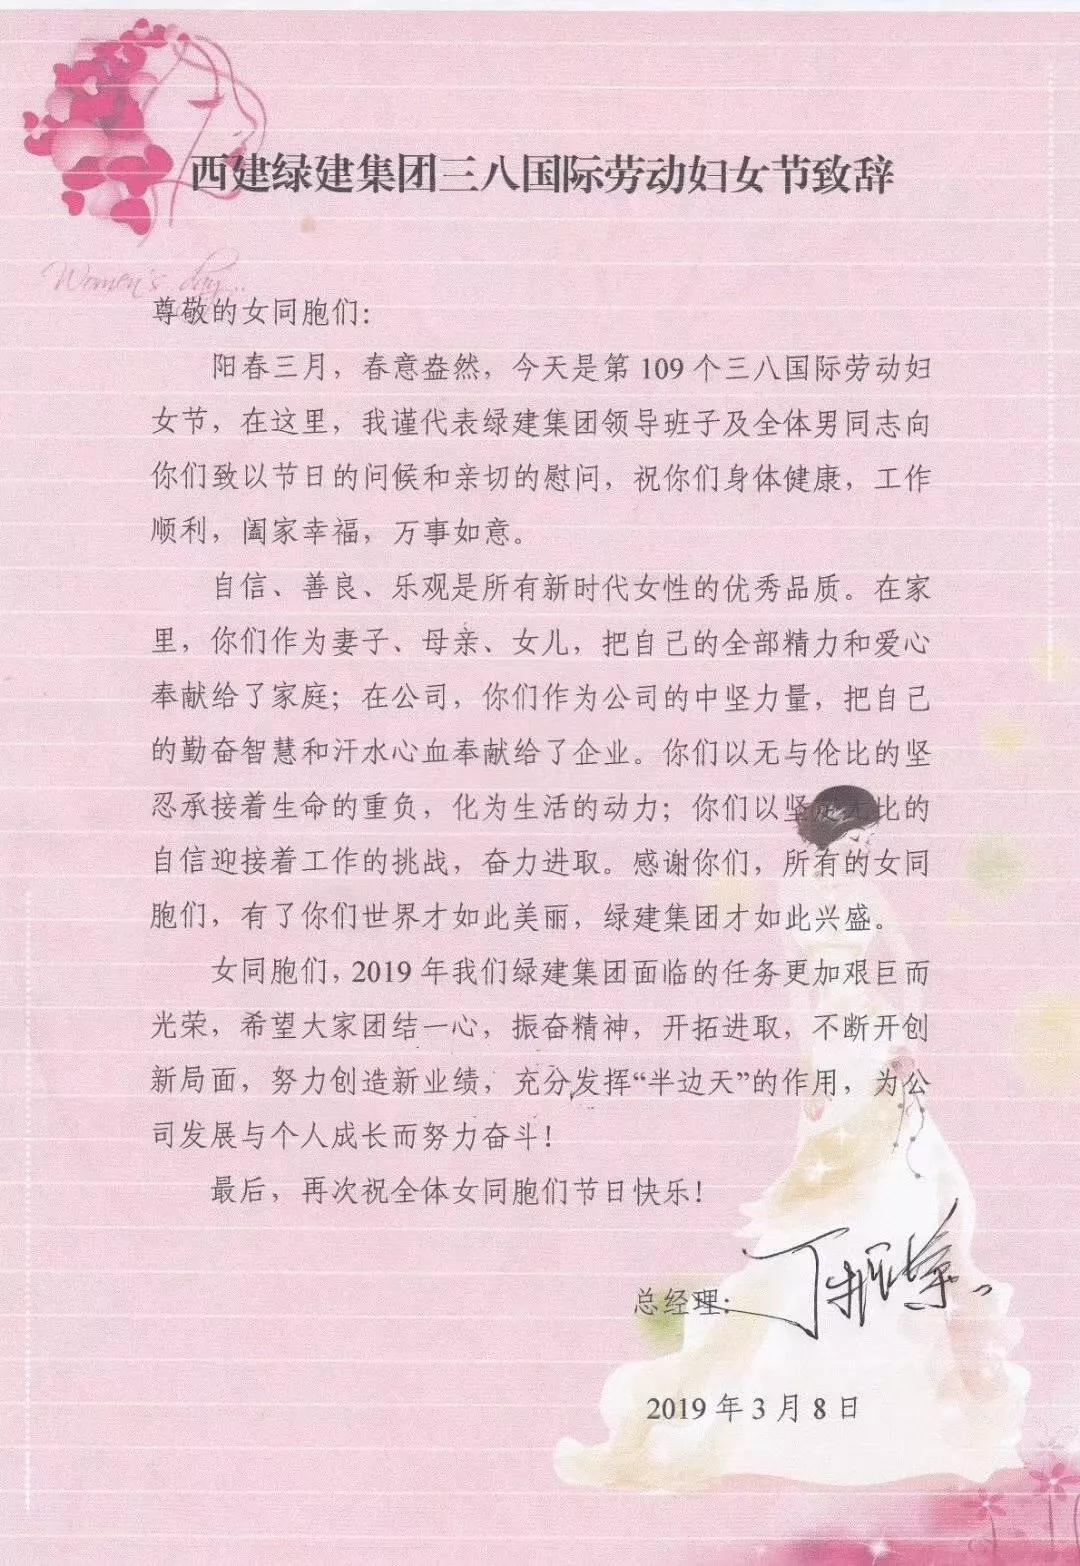 西建绿建集团三八国际劳动妇女节致辞
Women's day...
尊敬的女同胞们：
阳春三月，春意盎然，今天是第 109 个三八国际劳动妇
女节，在这里，我谨代表绿建集团领导班子及全体男同志向
你们致以节日的问候和亲切的慰问，祝你们身体健康，工作
顺利，阖家幸福，万事如意。
自信、善良、乐观是所有新时代女性的优秀品质。在家
里，你们作为妻子、母亲、女儿，把自己的全部精力和爱心
奉献给了家庭；在公司，你们作为公司的中坚力量，把自己
的勤奋智慧和汗水心血奉献给了企业。你们以无与伦比的坚
忍承接着生命的重负，化为生活的动力；你们以坚定无比的
自信迎接着工作的挑战，奋力进取。感谢你们，所有的女同
胞们，有了你们世界才如此美丽，绿建集团才如此兴盛。
女同胞们，2019 年我们绿建集团面临的任务更加艰巨而
光荣，希望大家团结一心，振奋精神，开拓进取，不断开创
新局面，努力创造新业绩，充分发挥“半边天”的作用，为公
司发展与个人成长而努力奋斗！
最后，再次祝全体女同胞们节日快乐！
总经理：
2019 年 3 月 8 日